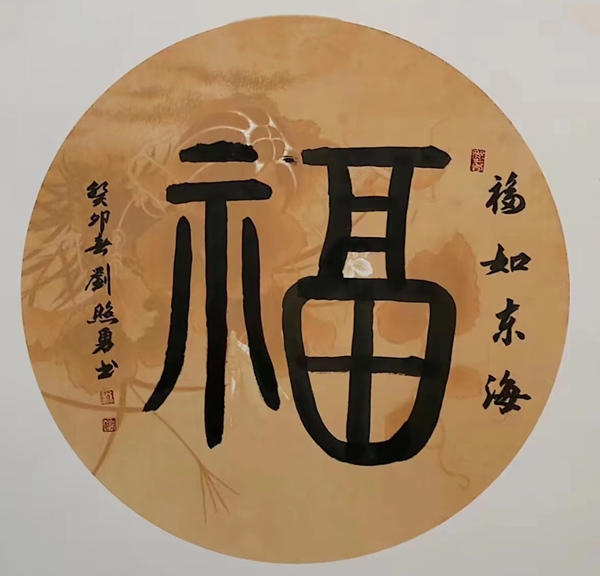 福如东海
福
癸卯春劉照勇书